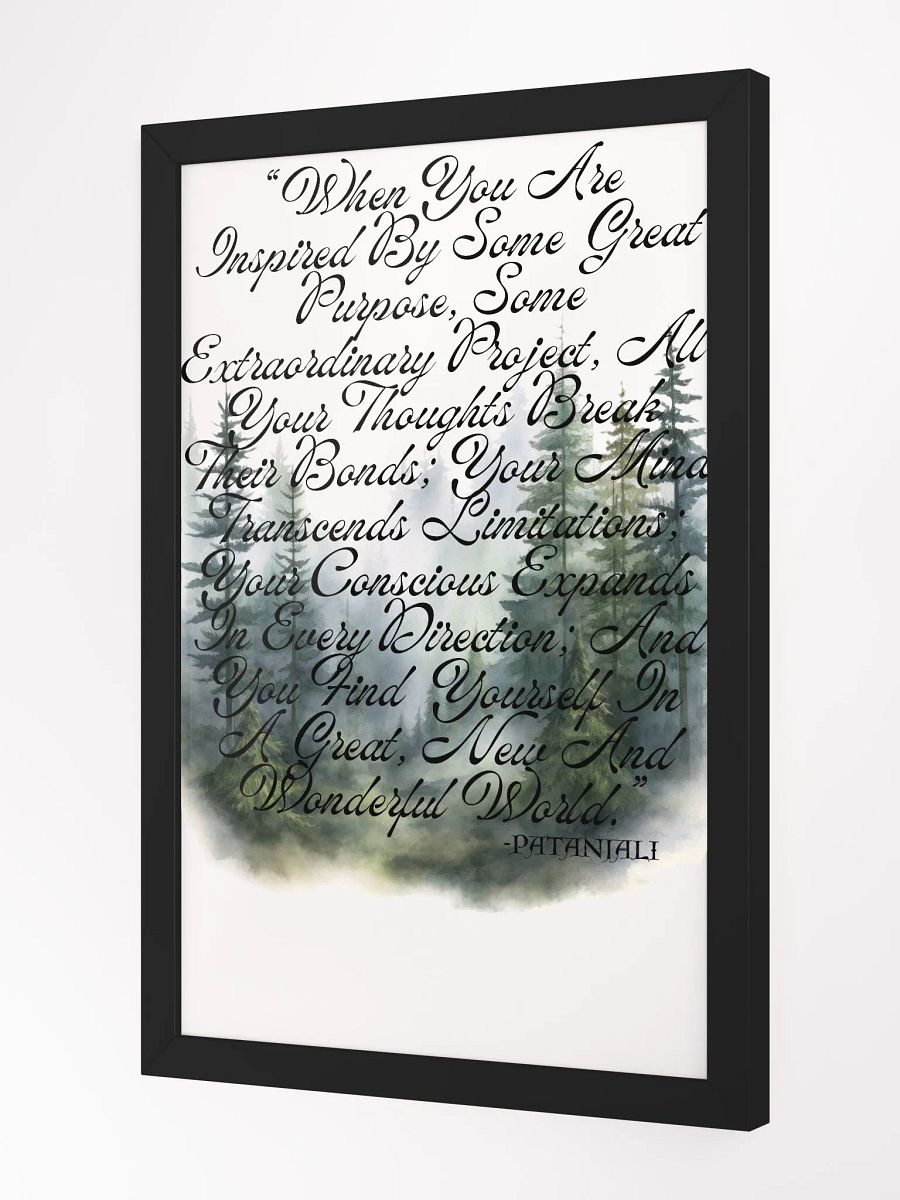 “When You Are
Inspired By Some Great
Purpose, Some
Extraordinary Project, All
Your Thoughts Break
Their Bonds; Your Mind
Transcends Limitations;
Your Conscious Expands
In Every Direction; And
You Find Yourself In
A Great, New And
Wonderful World.”
-PATANJALI